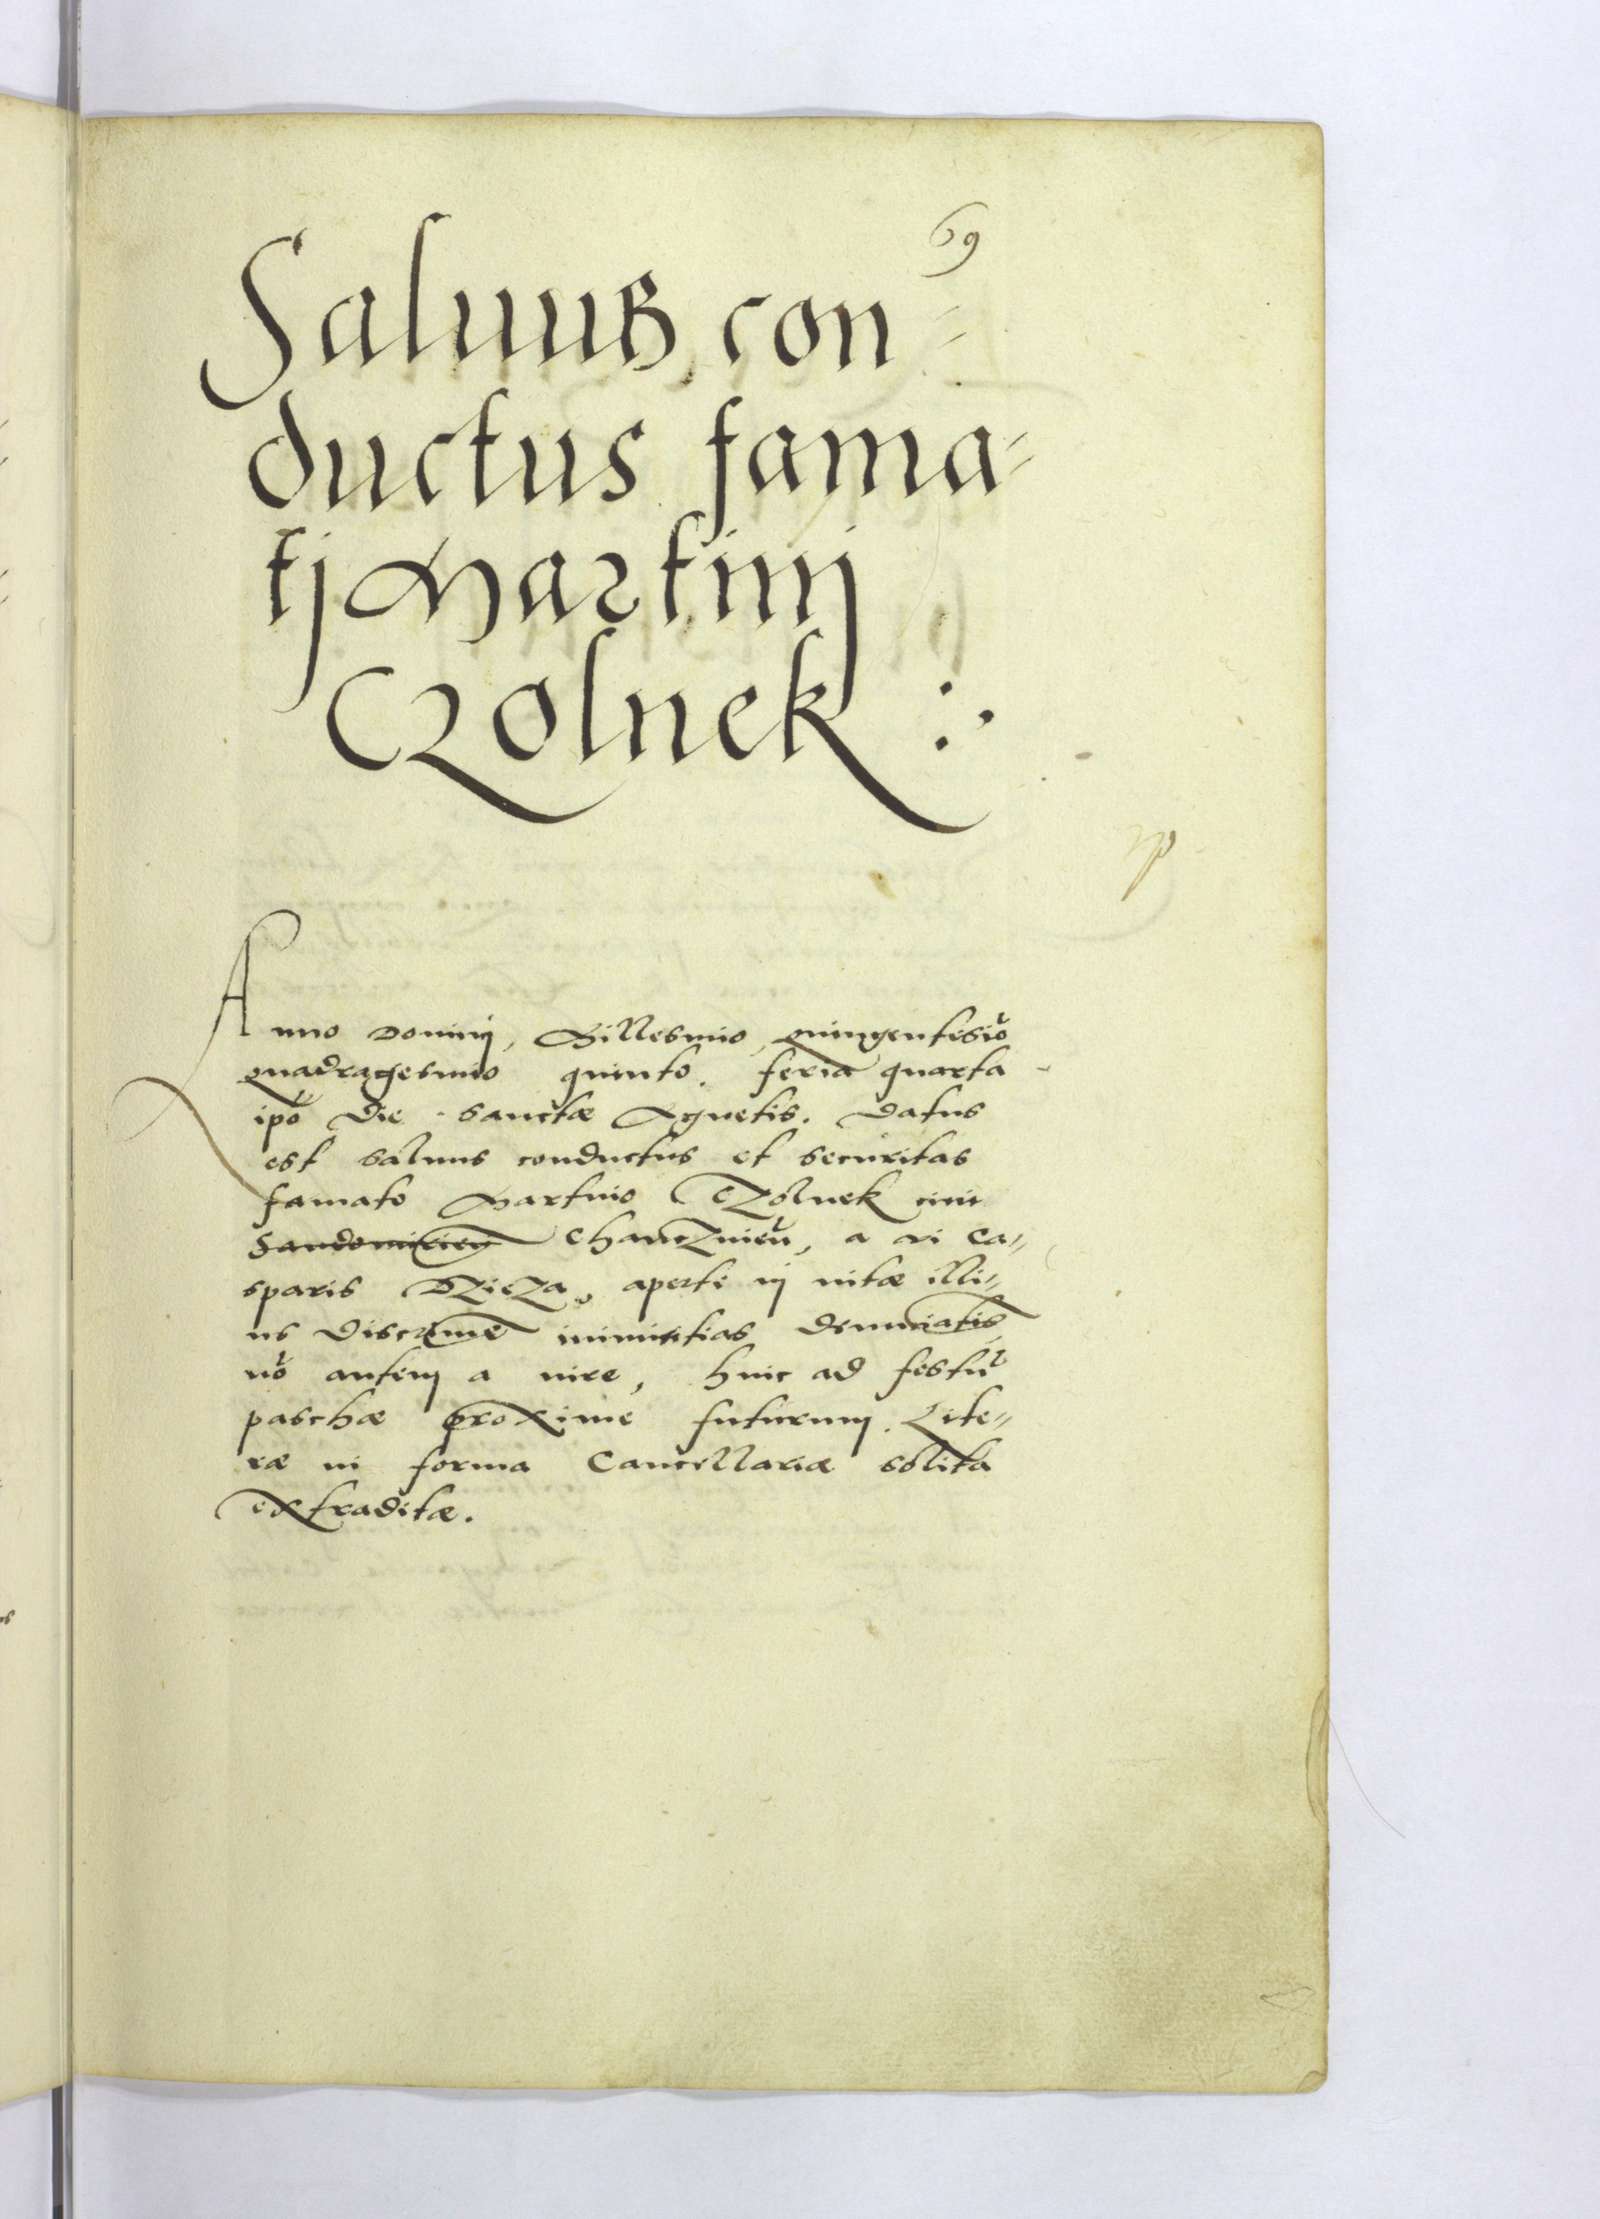 69
Saluus con-
ductus fama-
tj Martinj
Czolnek :.
Anno Dominj, Millesimo, quingentesiō
quadragesimo quinto. feria quarta
ipō die sanctæ Agnetis. Datus
est saluus conductus et securitas
famato Martino Czolnek ciui
Sandomirien Chanczinieñ, a vi Ca-
sparis Dzicza, aperte in vitæ illi-
us discrimē inimicitias denunciatis
nō autem a iure, hinc ad festū
paschæ proxime futurum. Lite-
ræ in forma Cancellariæ solita
extraditæ.